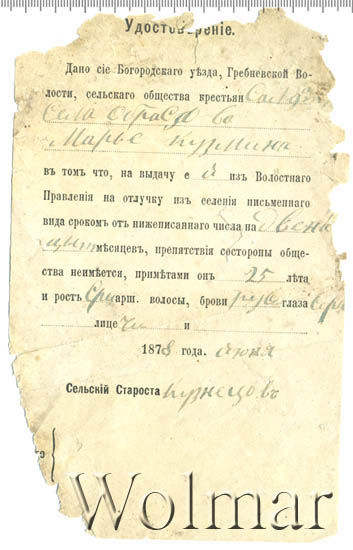 Удостовѣреніе.
Дано сіе Богородскаго уѣзда, Гребневской Во-
лости, сельскаго общества крестьян
Села
Марье Кузмина
въ томъ что, на выдачу е й изъ Волостнаго
Правленія на отлучку изъ селенія письменнаго
вида срокомъ отъ нижеписаннаго числа на двена
цыть мѣсяцевъ, препятствія состороны обще-
ства неимѣется, примѣтами онъ 25 лѣта
и ростъ Сре арш. волосы, брови рус глаза серы
лице чи и
1878 года. июня
Сельскій Староста Кузнецовъ
Wolmar